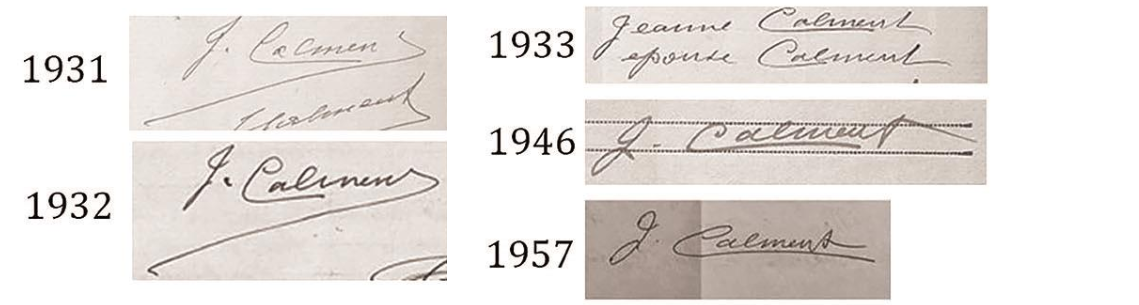 1931
J. Calment
1932
J. Calment
1933
Jeanne Calment
epouse Calment
1946
J. Calment
1957
J. Calment